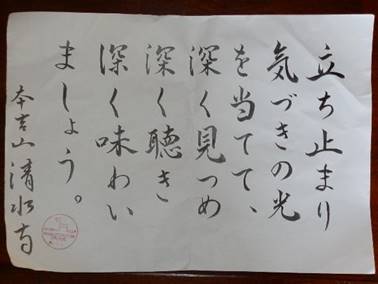 立ち止まり
気づきの光
を当てて、
深く見つめ
深く聴き
深く味わい
ましょう。
本吉山清水寺